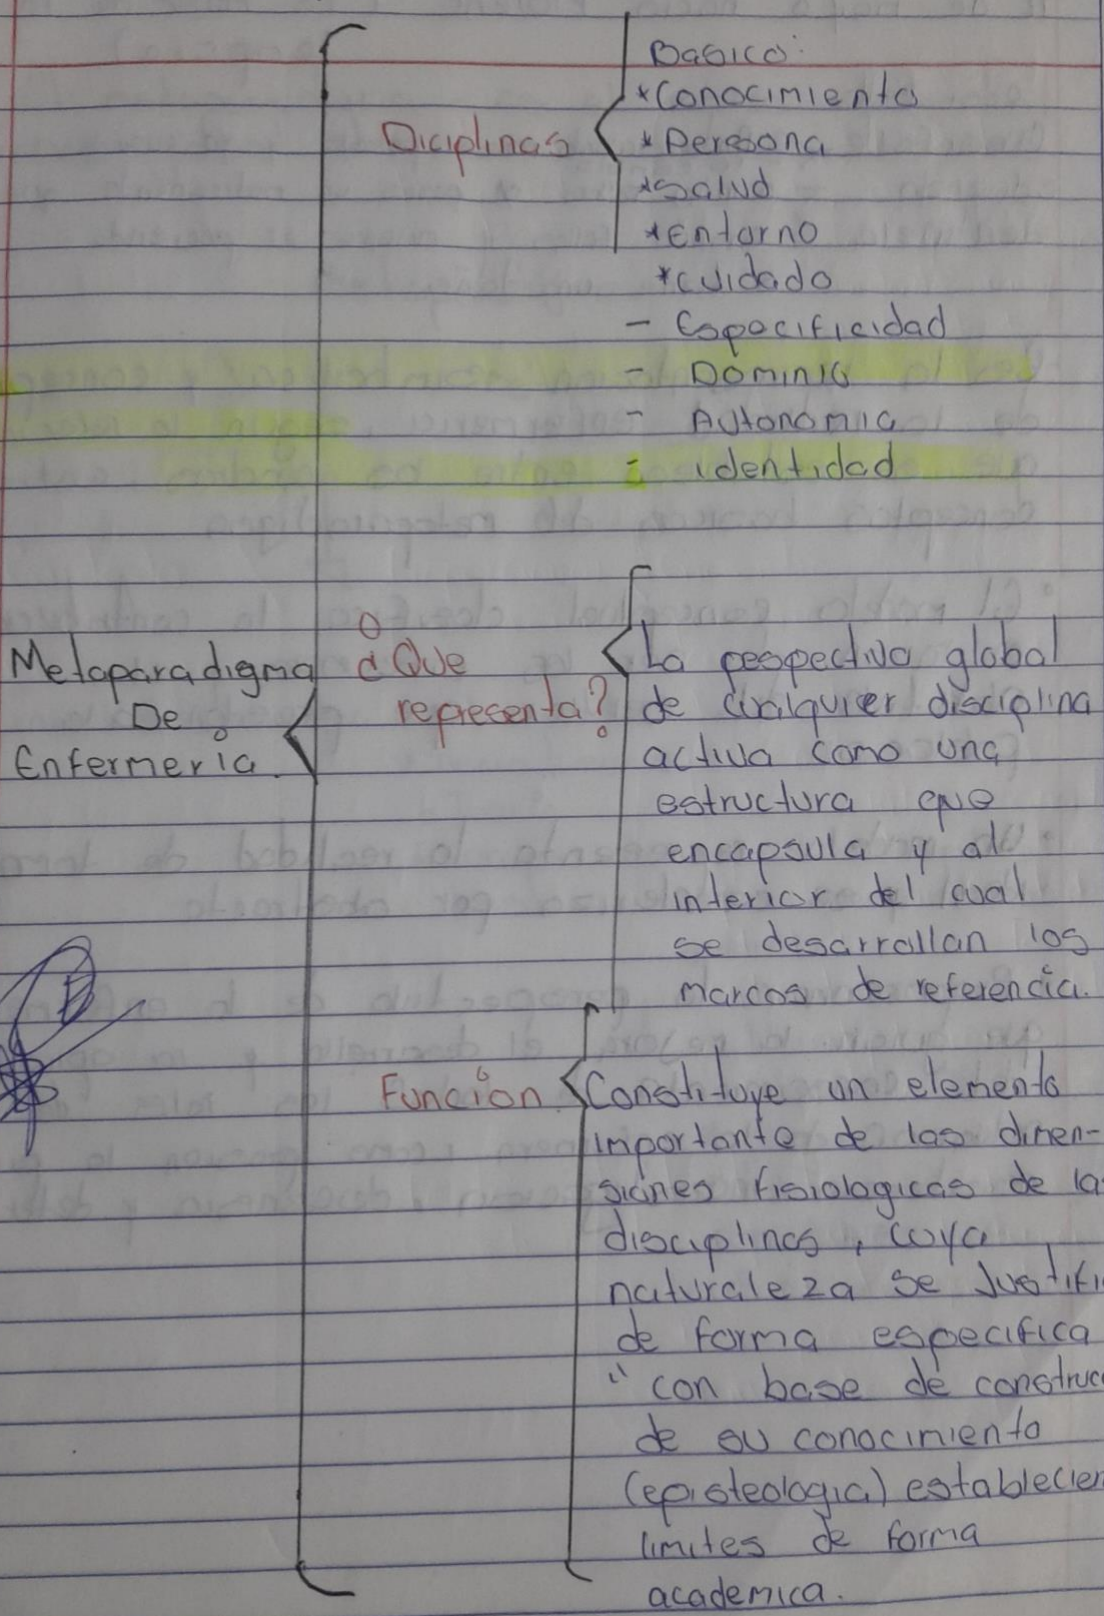 Basico:
Diciplinas
*Conocimiento
* Persona
*Salud
*Entorno
*cuidado
- Especificidad
- Dominio
- Autonomia
- identidad
Metaparadigma
De
Enfermería.
¿Que
representa?
La pespectiva global
de cualquier disciplina
activa como una
estructura que
encapsula y al
interior del cual
se desarrollan los
marcos de referencia.
Función.
Constituye un elemento
importante de las dimen-
siones fisiologicas de la
disciplinas, cuya
naturaleza se Justifi
de forma especifica
" con base de construc
de su conocimiento
(episteologia) establecien
limites de forma
academica.